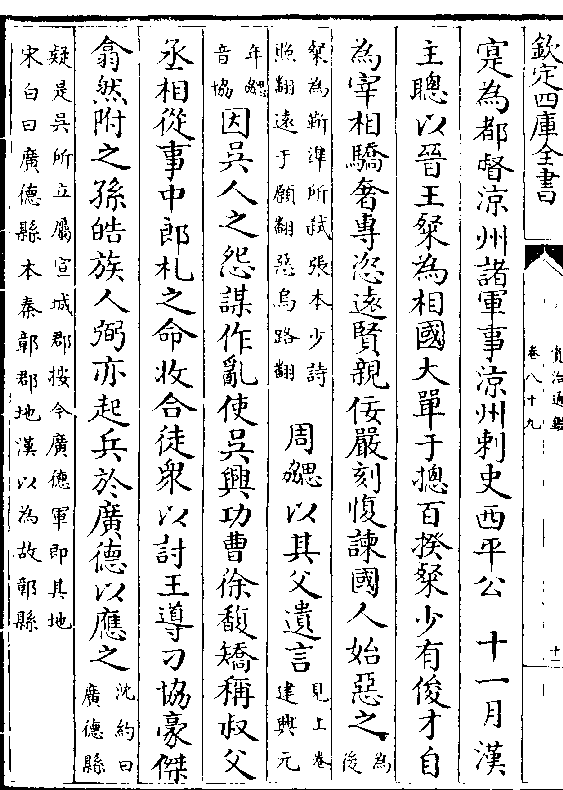 欽定四庫全書
資治通鑑
卷八十九
十二
寔為都督涼州諸軍事涼州刺史西平公　十一月漢
主聰以晉王粲為相國大單于摠百揆粲少有俊才自
為宰相驕奢專恣遠賢親佞嚴刻愎諫國人始惡之
為
後
粲為靳準所弑張本少詩
照翻遠于願翻惡烏路翻
周勰以其父遺言
見上卷
建興元
年勰
音協
因吳人之怨謀作亂使吳興功曹徐馥矯稱叔父
丞相從事中郎札之命收合徒衆以討王導刁協豪傑
翕然附之孫皓族人弼亦起兵於廣德以應之
沈約曰
廣德縣
疑是吳所立屬宣城郡按今廣德軍即其地
宋白曰廣德縣本秦鄣郡地漢以為故鄣縣